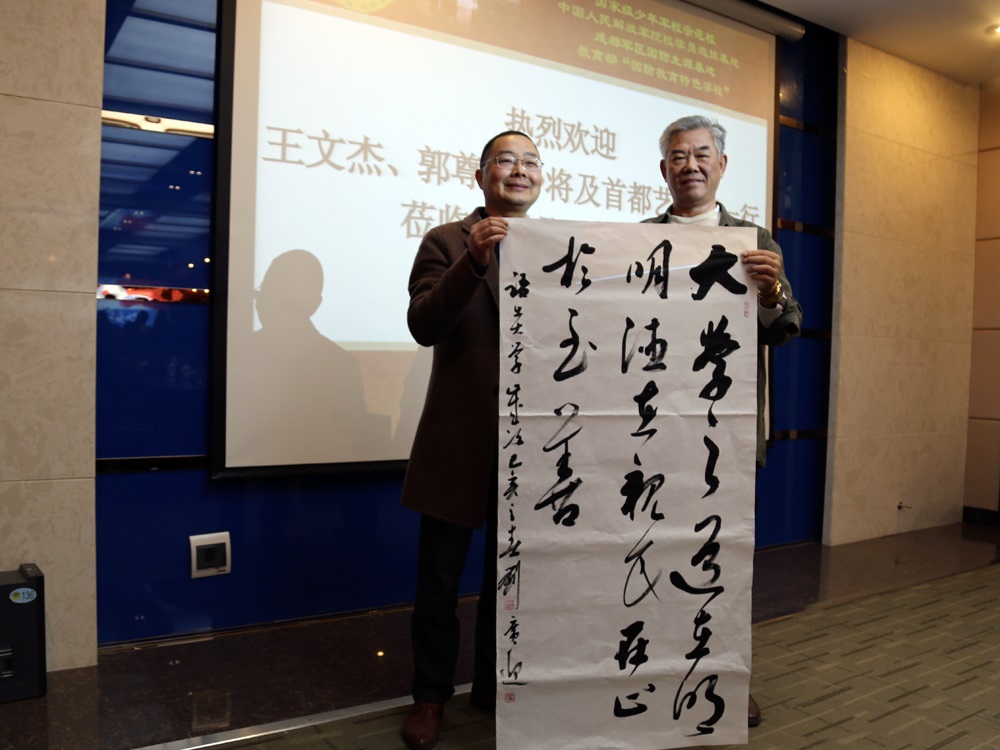 国家级少年军校示范校
中国人民解放军院校学员选拔基地
成都军区国防生源基地
教育部“国防教育特色学校”
热烈欢迎
王文杰、郭尊 将及首都艺 行
莅临
大學之道在明
明德在親民在止
於至善
歲次己亥之春劉
136